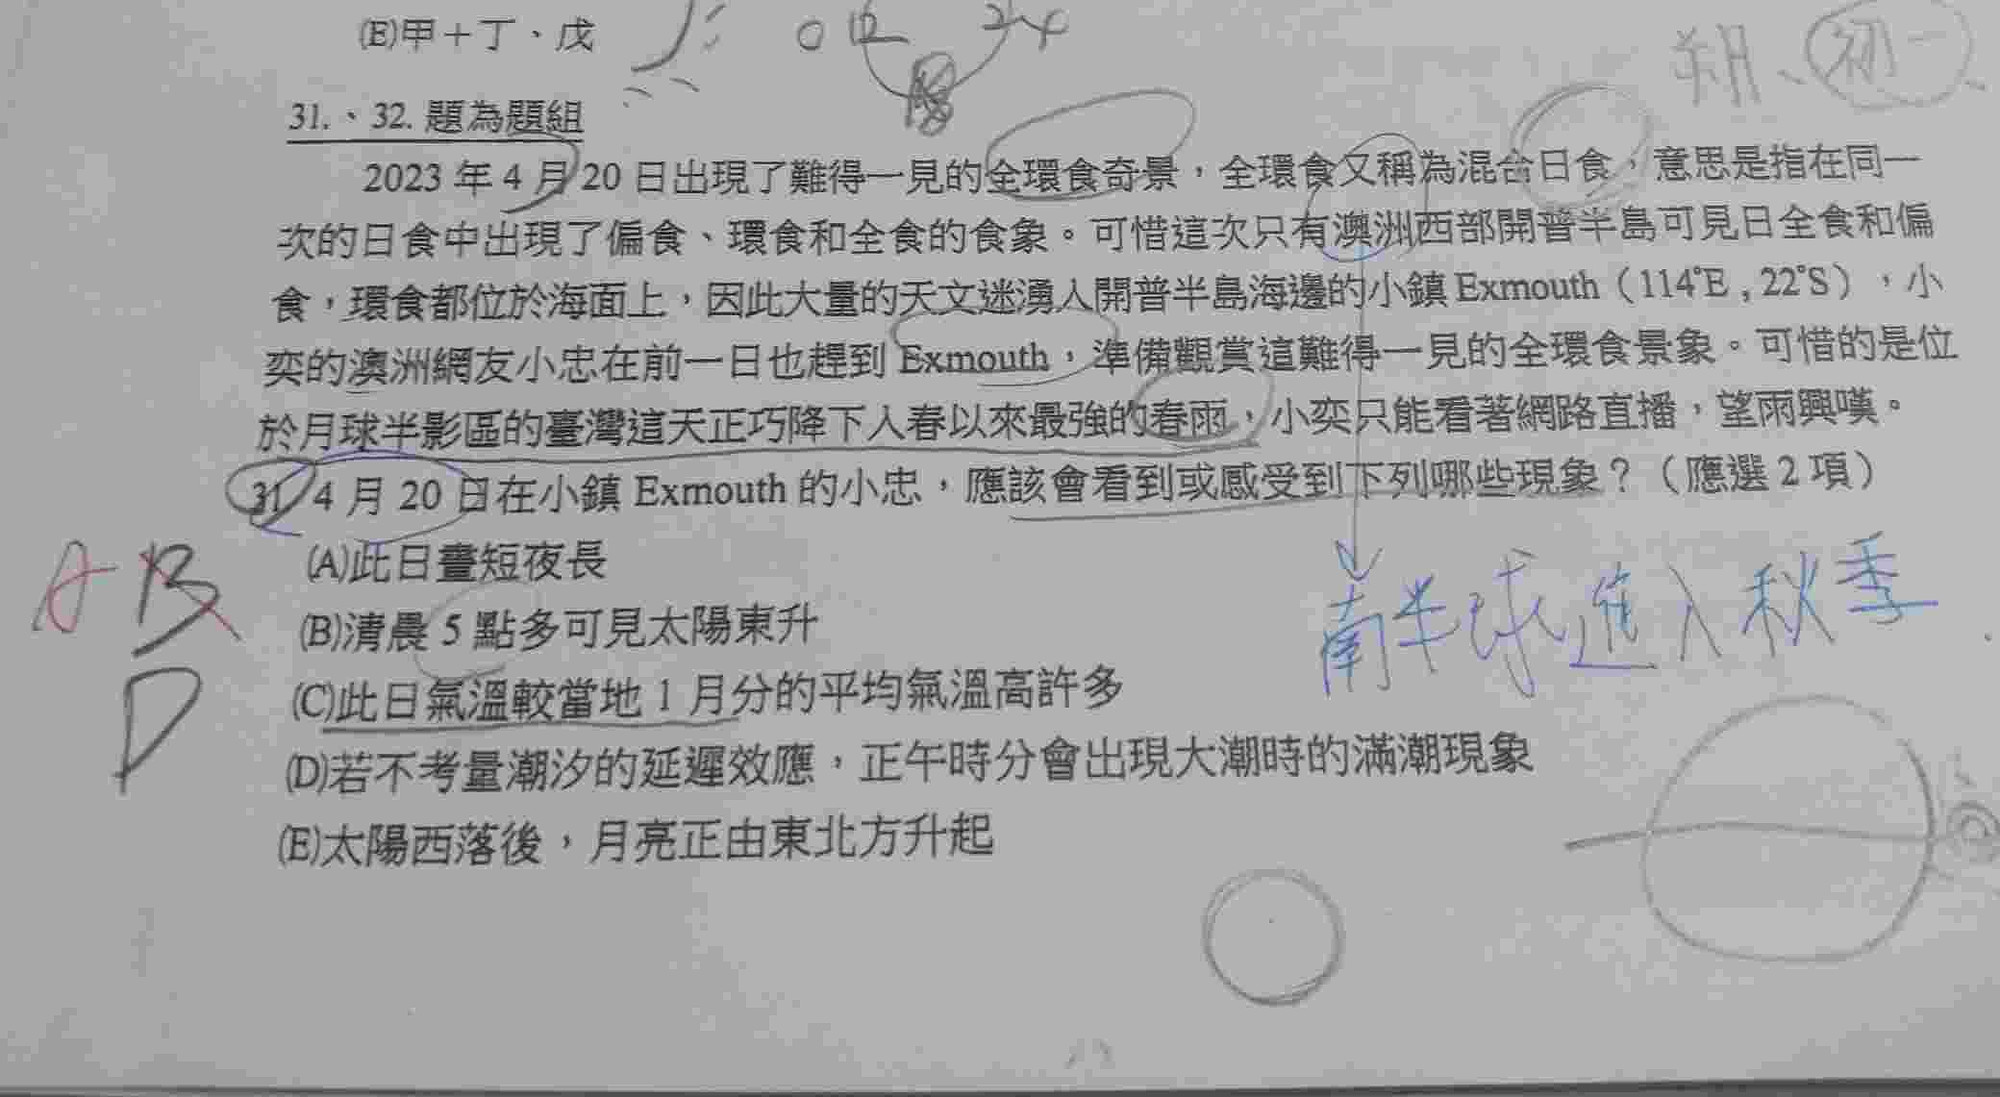 (E)甲＋丁、戊
0 12 24
朔、初一
31.、32. 題為題組
2023 年 4 月 20 日出現了難得一見的全環食奇景，全環食又稱為混合日食，意思是指在同一
次的日食中出現了偏食、環食和全食的食象。可惜這次只有澳洲西部開普半島可見日全食和偏
食，環食都位於海面上，因此大量的天文迷湧入開普半島海邊的小鎮 Exmouth（114°E , 22°S），小
奕的澳洲網友小忠在前一日也趕到 Exmouth，準備觀賞這難得一見的全環食景象。可惜的是位
於月球半影區的臺灣這天正巧降下入春以來最強的春雨，小奕只能看著網路直播，望雨興嘆。
31. 4 月 20 日在小鎮 Exmouth 的小忠，應該會看到或感受到下列哪些現象？（應選 2 項）
(A)此日晝短夜長
A B
(B)清晨 5 點多可見太陽東升
南半球進入秋季
(C)此日氣溫較當地 1 月分的平均氣溫高許多
D
(D)若不考量潮汐的延遲效應，正午時分會出現大潮時的滿潮現象
(E)太陽西落後，月亮正由東北方升起